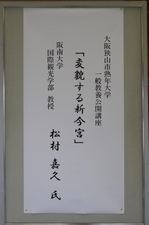 大阪狭山市熟年大学
一般教養公開講座
「変貌する新今宮」
阪南大学
国際観光学部 教授
松村 嘉久 氏